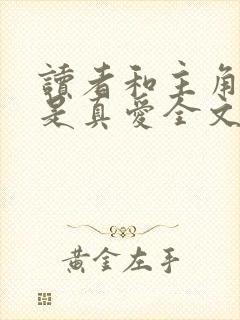 讀者和主角
是真愛全文
黃金左手